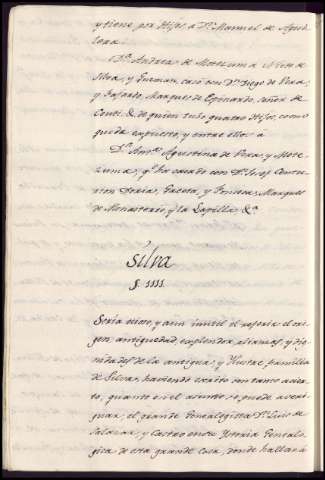 y tiene por Hijo, à Dn. Manuel de Aguilera.
Da. Andrea de Motezuma Nieto de
Silva, y Guzman, casó con Dn. Diego de Vera,
y Faxardo, Marques de Espinardo, señor de
Ontur &. de quien tubo quatro Hijos, como
queda expuesto, y entre ellos à
Da. Agustina de Vera, y Mote-
zuma, qe. ha casado con Dn. Josef Centu-
rion Arias, Pacheco, y Fonseca, Marques
de Monasterio, y la Lapilla &a.
Silva
§. IIII.
Seria ocioso, y aun inutil el referir el ori-
gen, antiguedad, esplendor, alianzas, y dig-
nidades de la antigua, y Ilustre familia
de Silva, haviendo escrito con tanto acier-
to, quanto en el asunto, se puede averi-
guar, el grande Genealogista Dn. Luis de
Salazar, y Castro en su Ystoria Genealo-
gica de esta grande Casa, donde hallará